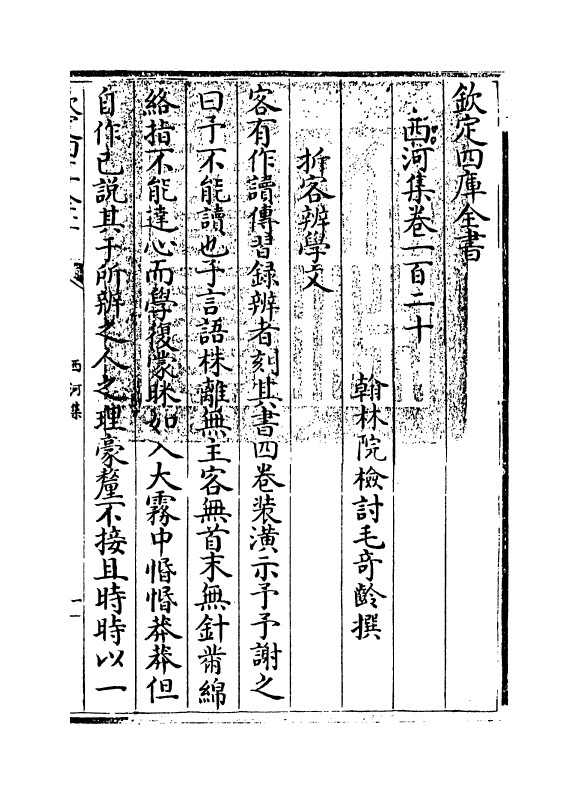 欽定四庫全書
西河集卷一百二十
翰林院檢討毛竒齡撰
折客辨學文
客有作讀傳習録辨者刻其書四卷装潢示予予謝之
曰予不能讀也予言語侏離無主客無首末無針黹綿
絡指不能達心而學復蒙昧如入大霧中惛惛莽莽但
自作已説其于所辨之人之理豪釐不接且時時以一
西河集
一